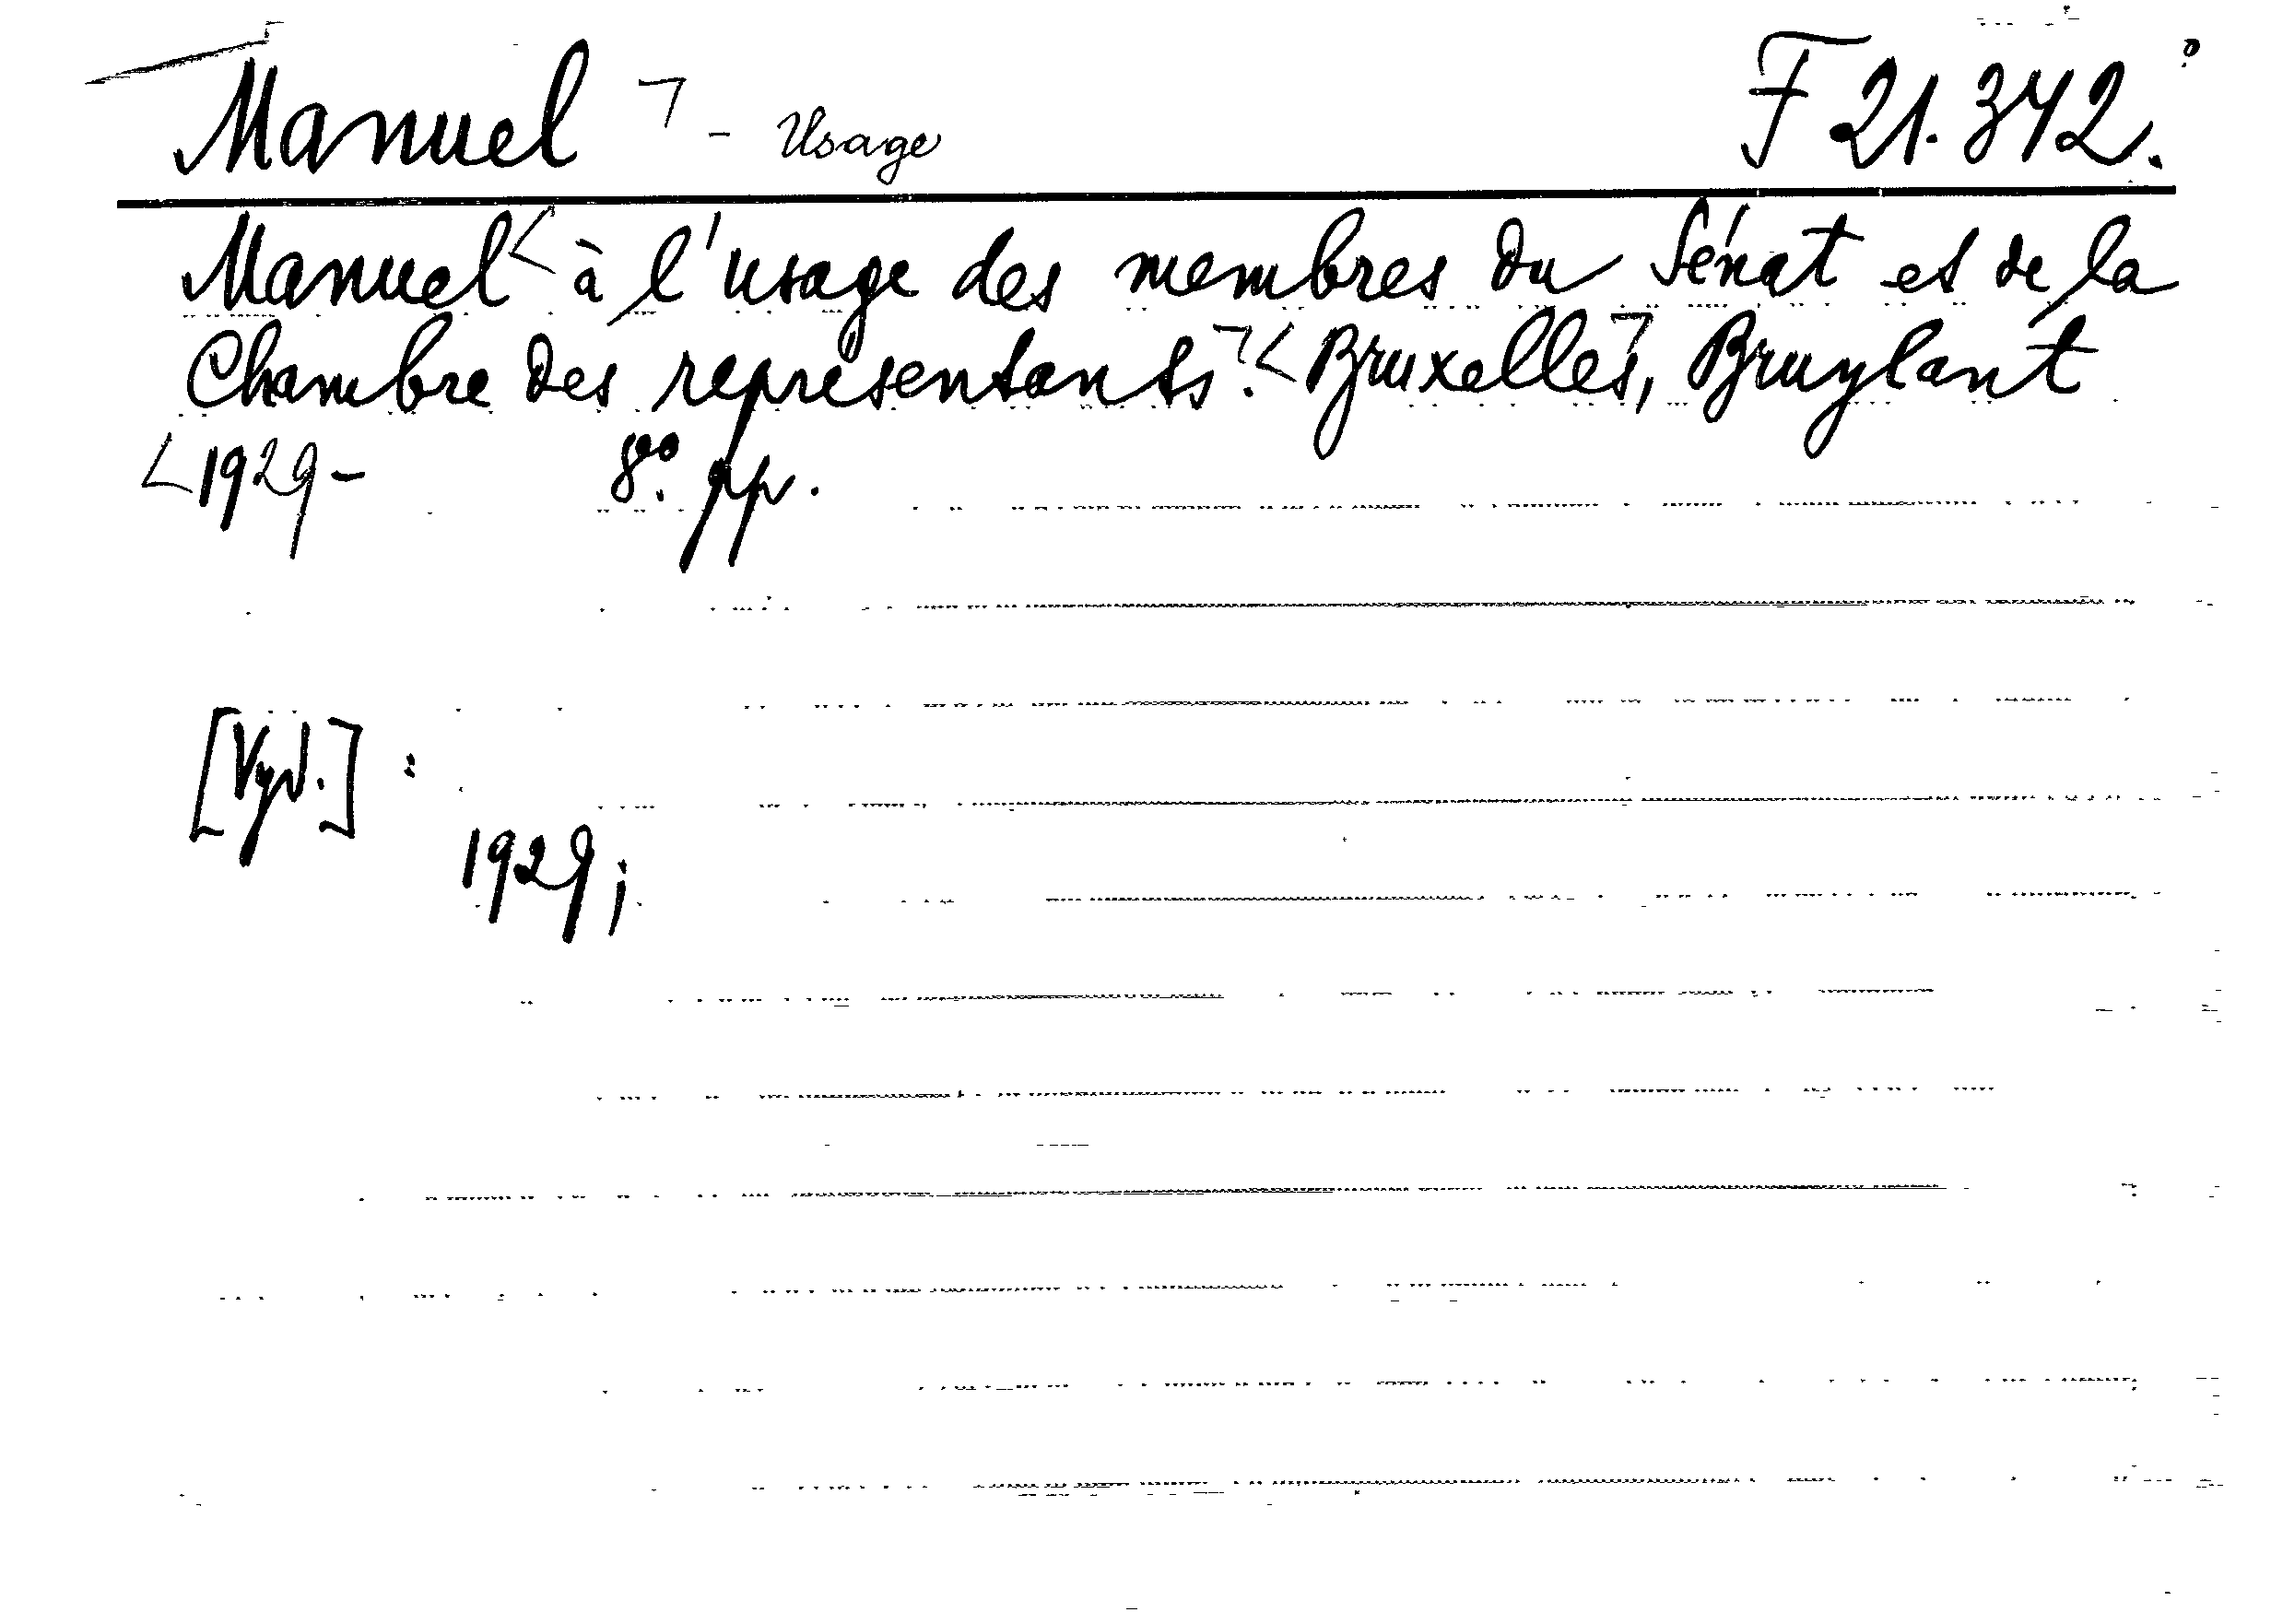 Manuel ¬ - Usage F 21.342.
Manuel < à l'usage des membres du Sénat et de la
Chambre des représentants ¬. < Bruxelles ¬, Bruylant
< 1929 - 8°. pp.
[Vyd.] :
1929;